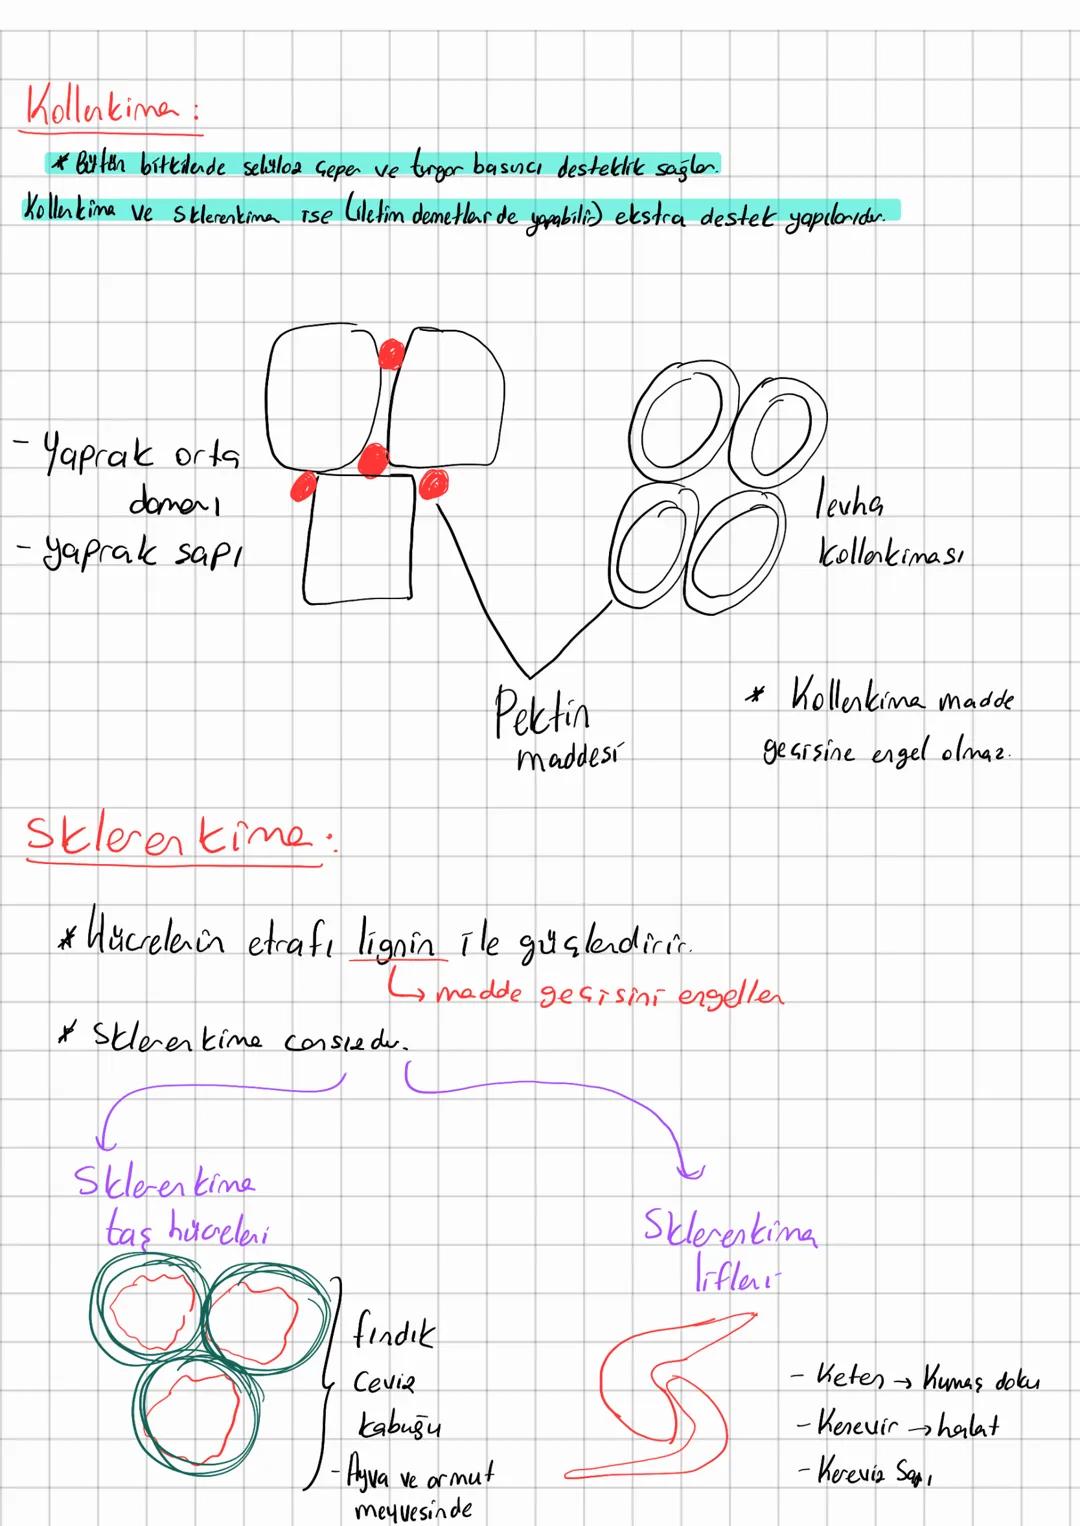 Kollenkima :
* Bütün bitkilerde selüloz çeper ve turgor basıncı desteklik sağlar.
Kollenkima ve Sklerenkima ise (iletim demetler de yapabilir) ekstra destek yapılarıdır.
- Yaprak orta
damarı
- yaprak sapı
levha
kollenkiması
Pektin
maddesi
* Kollenkima madde
geçişine engel olmaz.
Sklerenkima :
* Hücrelerin etrafı lignin ile güçlendirir.
↳ madde geçişini engeller
* Sklerenkima cansızdır.
Sklerenkima
taş hücreleri
Sklerenkima
lifleri
fındık
Ceviz
kabuğu
- Ayva ve armut
meyvesinde
- Keten → Kumaş doku
- Kenevir → halat
- Kereviz Sapı